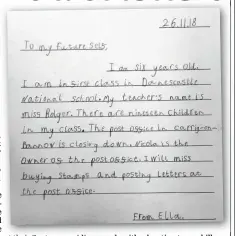 26.11.18
To my Future Self,
I am six years old.
I am in First class in Danescastle
National school. My teacher's name is
miss Bolger. There are nineteen children
in my class. The post office in carrig-on-
Bannow is closing down. Nicola is the
owner of the post office. I will miss
buying stamps and posting letters at
the post office.
From Ella.